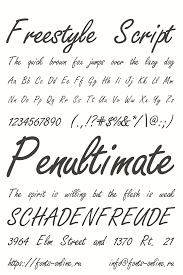 Freestyle Script
The quick brown fox jumps over the lazy dog
Aa Bb Cc Dd Ee Ff Gg Hh Ii Jj Kk Ll Mm
Nn Oo Pp Qq Rr Ss Tt Uu Vv Ww Xx Yy Zz
1234567890 (.,!?#$%&*/\@:;)
Penultimate
The spirit is willing but the flesh is weak
SCHADENFREUDE
3964 Elm Street and 1370 Rt. 21
https://fonts-online.ru info@fonts-online.ru